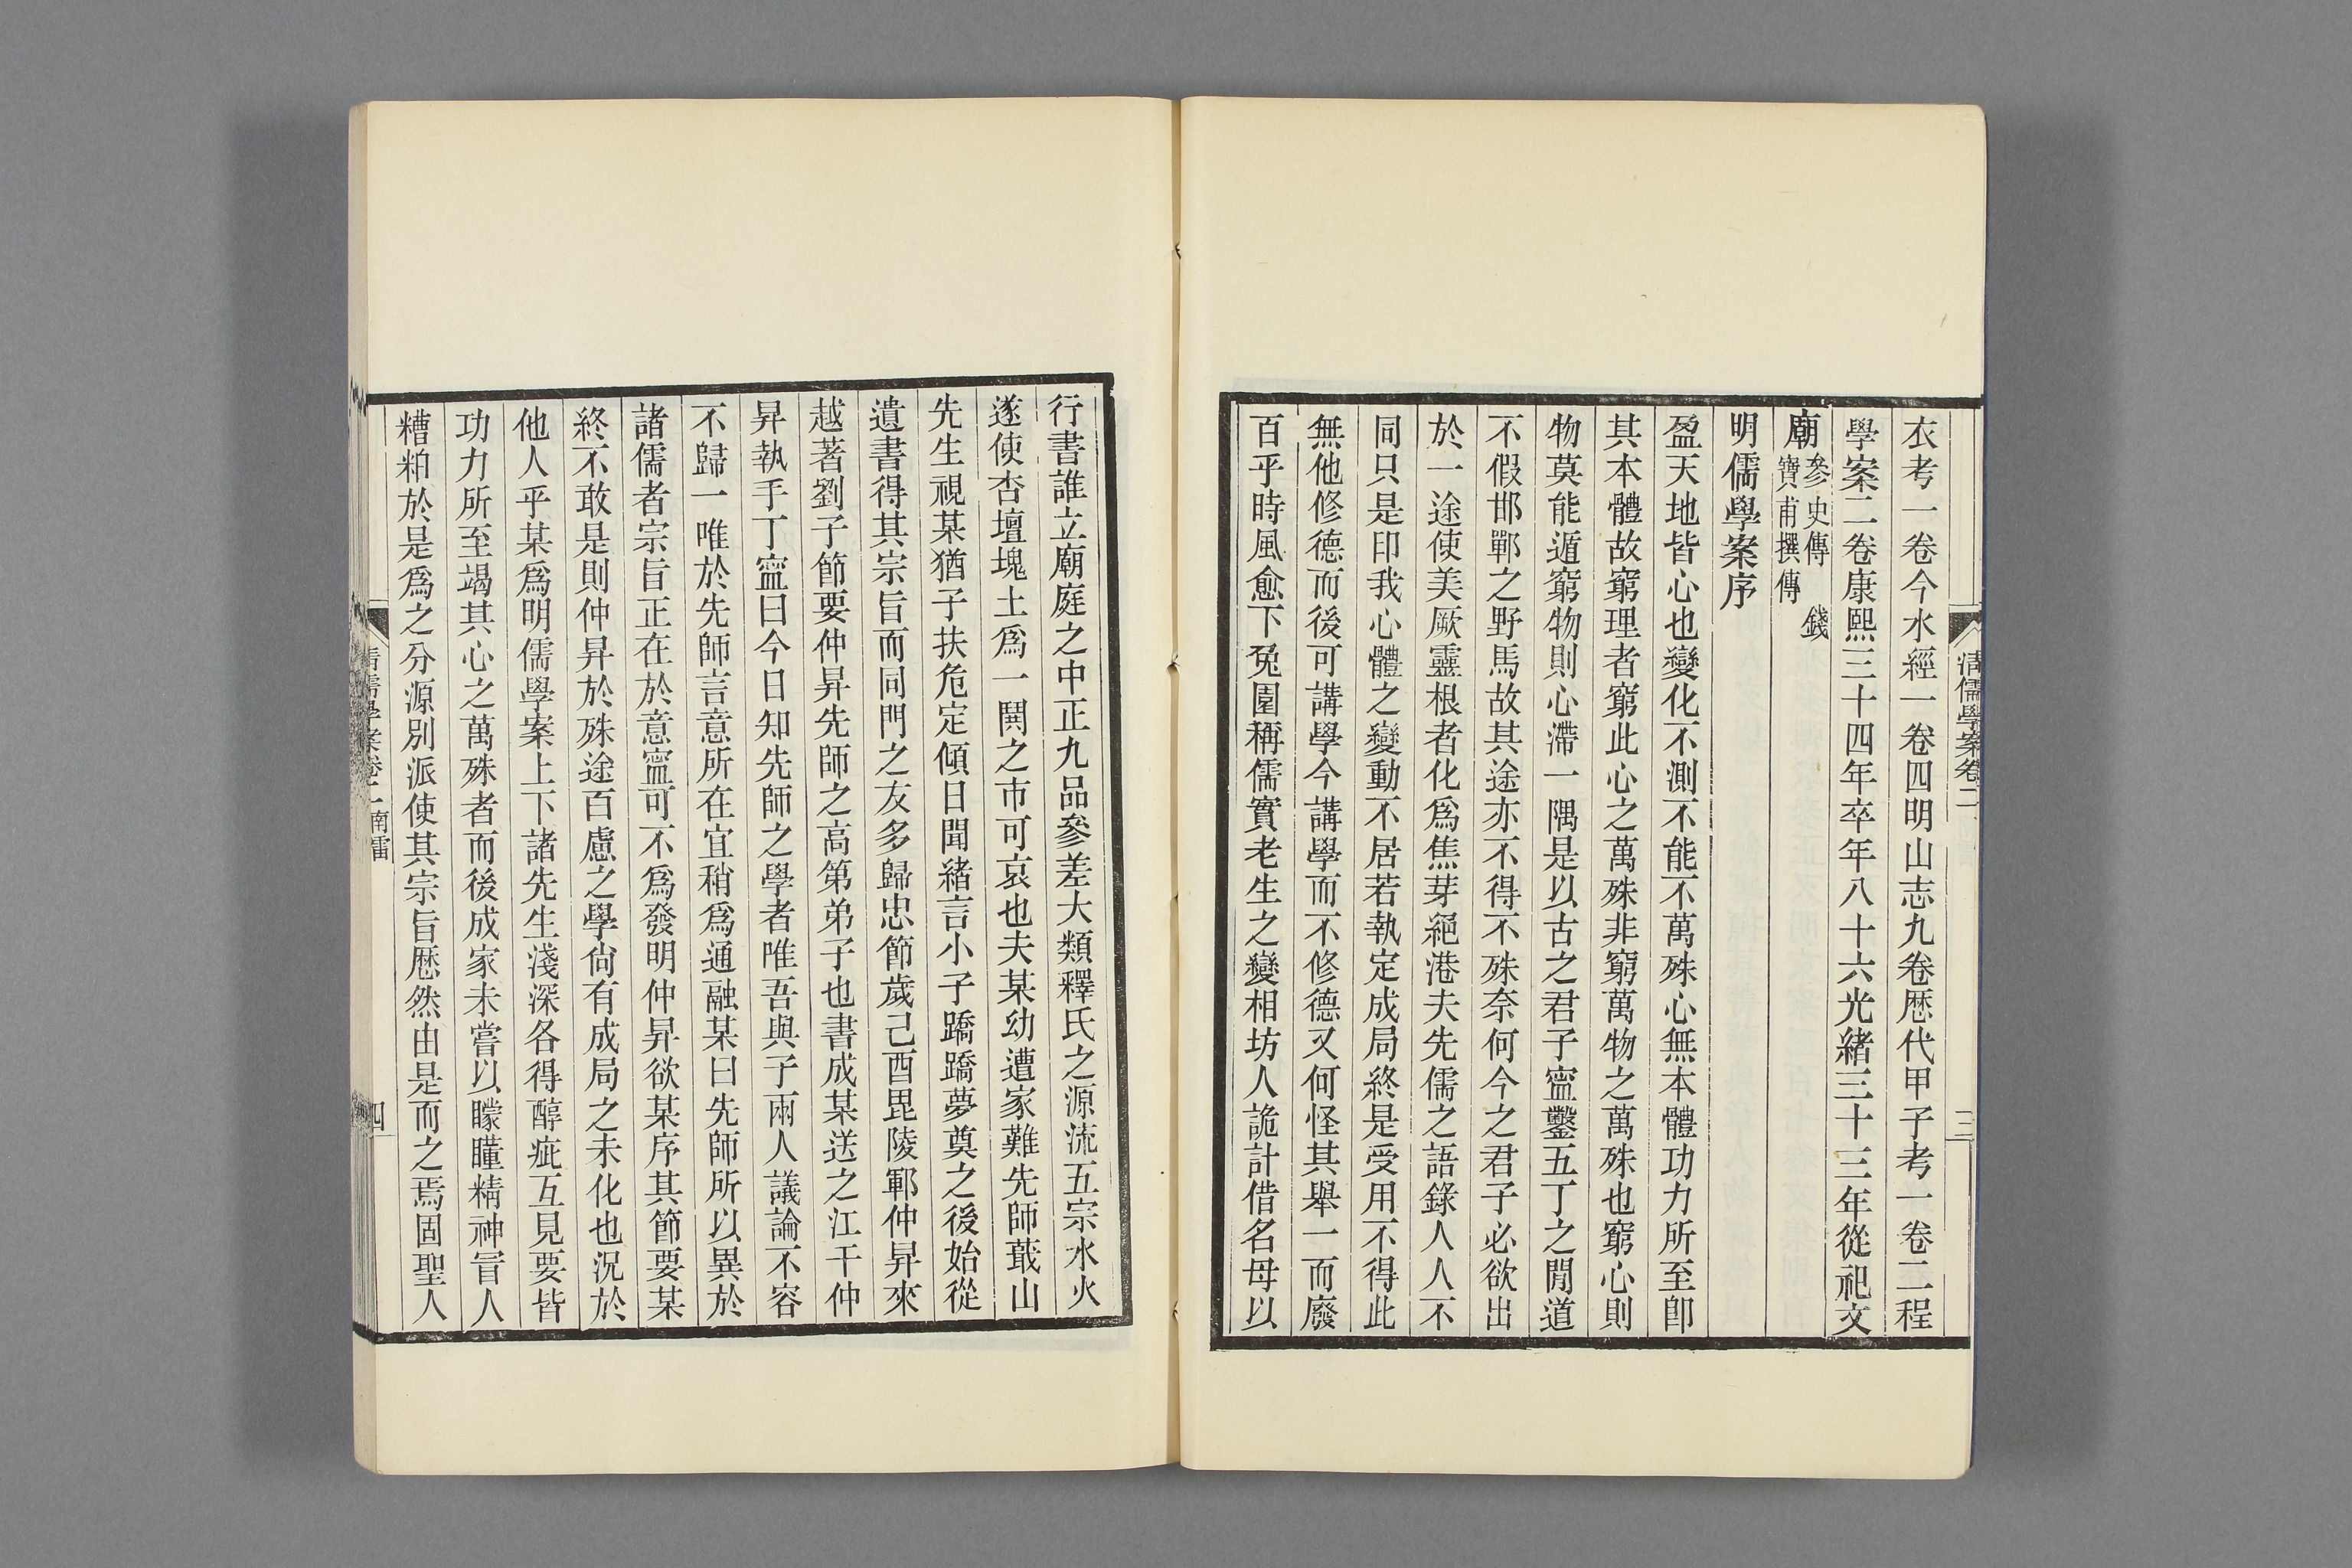 清儒學案卷二
三
衣考一卷今水經一卷四明山志九卷歷代甲子考一卷二程
學案二卷康熙三十四年卒年八十六光緒三十三年從祀文
廟參史傳 錢
寶甫撰傳
明儒學案序
盈天地皆心也變化不測不能不萬殊心無本體功力所至卽
其本體故窮理者窮此心之萬殊非窮萬物之萬殊也窮心則
物莫能遁窮物則心滯一隅是以古之君子寍鑿五丁之閒道
不假邯鄲之野馬故其途亦不得不殊奈何今之君子必欲出
於一途使美厥靈根者化爲焦芽絕港夫先儒之語錄人人不
同只是印我心體之變動不居若執定成局終是受用不得此
無他修德而後可講學今講學而不修德又何怪其舉一而廢
百乎時風愈下兔園稱儒實老生之變相坊人詭計借名母以
行書誰立廟庭之中正九品參差大類釋氏之源流五宗水火
遂使杏壇塊土爲一鬨之市可哀也夫某幼遭家難先師蕺山
先生視某猶子扶危定傾日聞緒言小子蹻蹻夢奠之後始從
遺書得其宗旨而同門之友多歸忠節歲己酉毘陵鄆仲昇來
越著劉子節要仲昇先師之高第弟子也書成某送之江干仲
昇執手丁寍曰今日知先師之學者唯吾與子兩人議論不容
不歸一唯於先師言意所在宜稍爲通融某曰先師所以異於
諸儒者宗旨正在於意寍可不爲發明仲昇欲某序其節要某
終不敢是則仲昇於殊途百慮之學尙有成局之未化也況於
他人乎某爲明儒學案上下諸先生淺深各得醇疵互見要皆
功力所至竭其心之萬殊者而後成家未嘗以矇瞳精神冒人
糟粕於是爲之分源別派使其宗旨歷然由是而之焉固聖人
清儒學案卷二 南雷
四